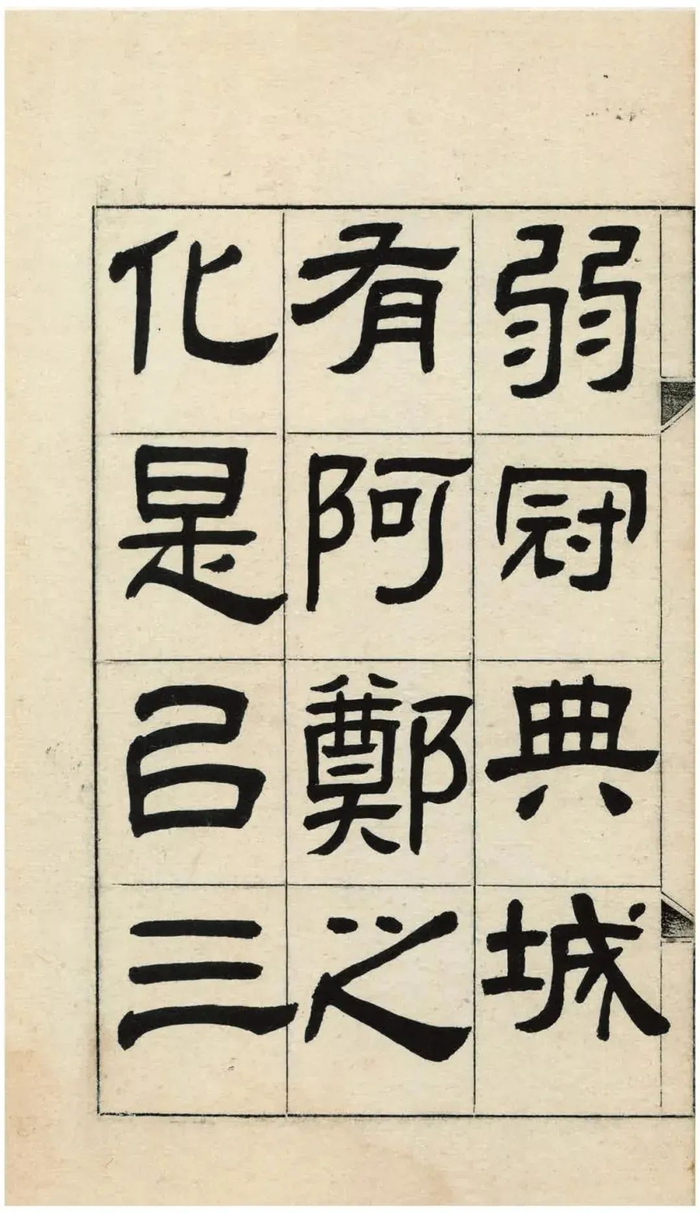 弱冠典城
有阿鄭之
化是㠯三